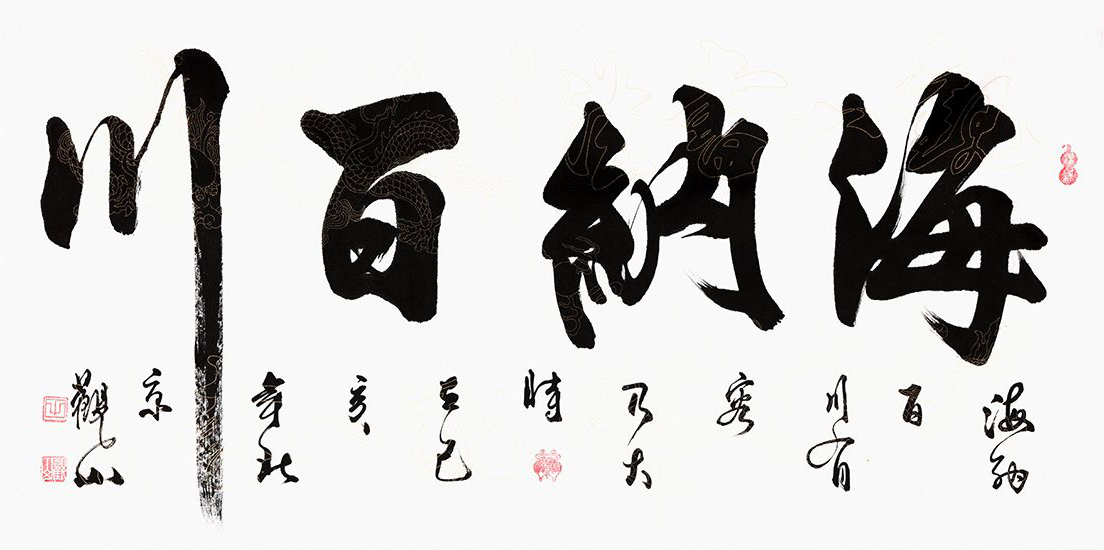 海納百川
海納
百
川有
容
乃大
時
在己
亥
年北
京
觀山